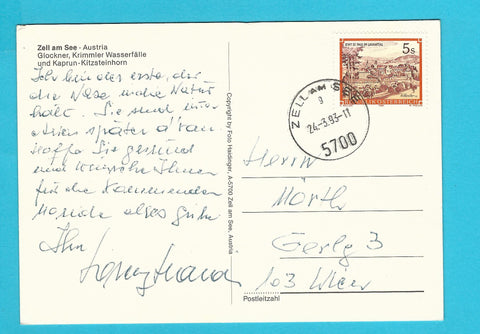 Zell am See - Austria
Glockner, Krimmler Wasserfälle
und Kaprun-Kitzsteinhorn
Ich bin der erste, der
die Nase in die Natur
hält. Sie sind
später d'ran
hoffe Sie gesund
und wünsche Ihnen
für die kommenden
Monate alles Gute
Ihr
Copyright by Foto Haidinger, A-5700 Zell am See, Austria
STIFT ST. PAUL IM LAVANTTAL
5 S
REPUBLIK ÖSTERREICH
ZELL AM SEE
9
24.-3.93-11
5700
Herrn
3
103 Wien
Postleitzahl